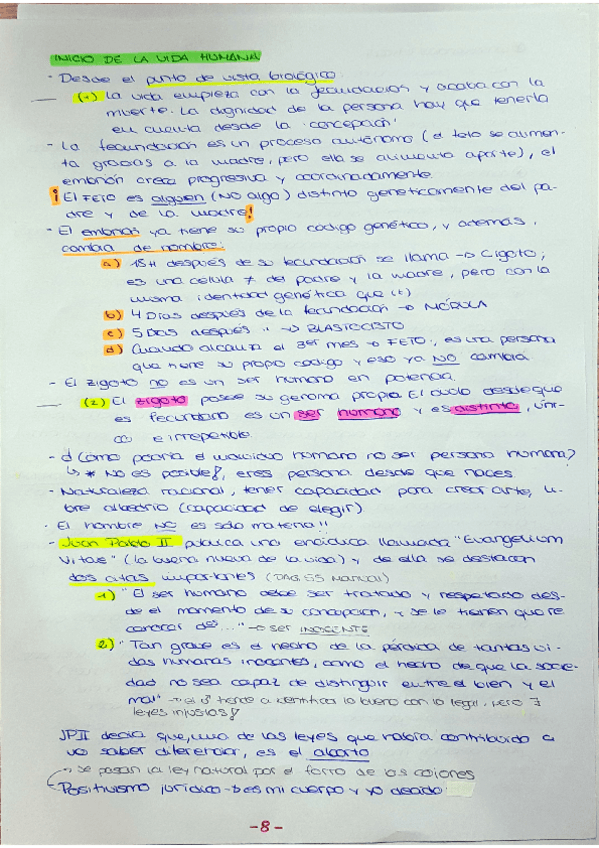 INICIO DE LA VIDA HUMANA
- Desde el punto de vista biológico:
(1) La vida empieza con la fecundación y acaba con la
muerte. La dignidad de la persona hay que tenerla
en cuenta desde la "concepción"
- La fecundación es un proceso autónomo (el feto se alimen-
ta gracias a la madre, pero ella se alimenta aparte), el
embrión crece progresiva y coordinadamente.
¡El FETO es alguien (NO algo) distinto genéticamente del pa-
dre y de la madre!
- El embrión ya tiene su propio código genético, y además,
cambia de nombre:
a) 18H después de su fecundación se llama → Cigoto,
es una célula ≠ del padre y la madre, pero con la
misma identidad genética que
b) 4 Días después de la fecundación → MÓRULA
c) 5 Días después " → BLASTOCISTO
d) Cuando alcanza el 3er mes → FETO, es una persona
que tiene su propio código y eso ya NO cambia.
- El zigoto no es un ser humano en potencia.
(2) El zigoto posee su genoma propio. El óvulo desde que
es fecundado es un ser humano y es distinto, úni-
co e irrepetible.
- ¿Cómo podría el individuo humano no ser persona humana?
↳ * No es posible!, eres persona desde que naces.
- Naturaleza racional, tener capacidad para crear arte, li-
bre albedrío (capacidad de elegir).
- El hombre NO es sólo materia!!
- Juan Pablo II publica una encíclica llamada "Evangelium
Vitae" (la buena nueva de la vida) y de ella se destacan
dos citas importantes (PAG. 55 Manual)
1) "El ser humano debe ser tratado y respetado des-
de el momento de su concepción, y se le tienen que re
conocer de..." → ser INOCENTE
2) "Tan grave es el hecho de la pérdida de tantas vi-
das humanas inocentes, como el hecho de que la socie-
dad no sea capaz de distinguir entre el bien y el
mal" → tiende a identificar lo bueno con lo legal, pero ∃
leyes injustas!
JPII decía que, una de las leyes que había contribuido a
no saber diferenciar, es el aborto
→ se pasan la ley natural por el forro de los cojones
Positivismo jurídico → es mi cuerpo y yo decido
-8-